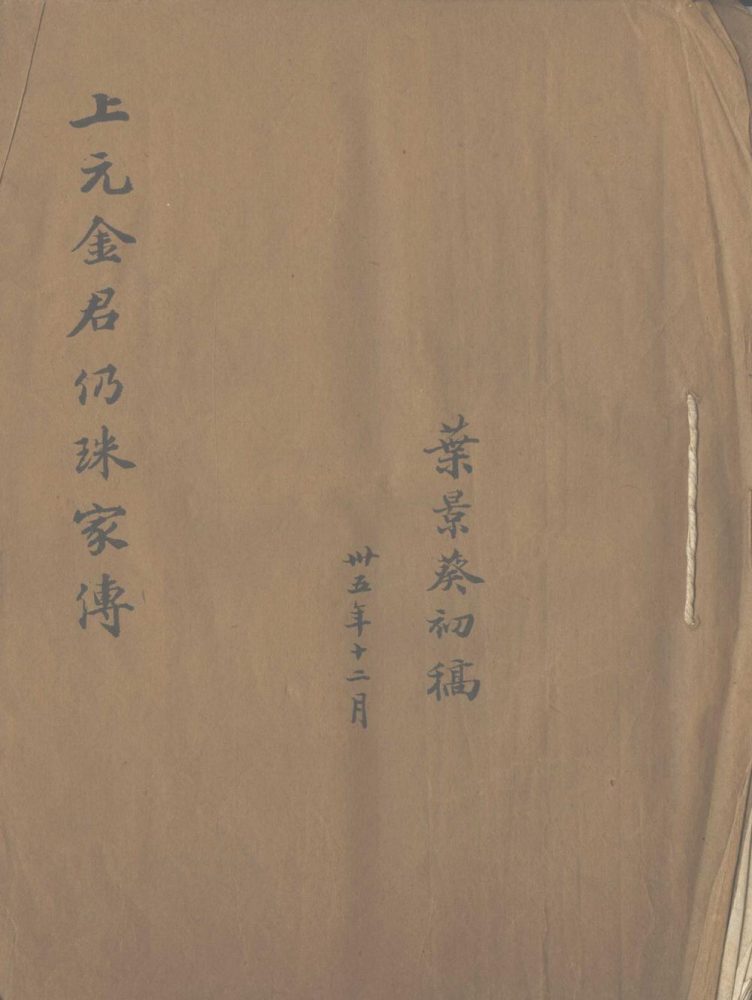 上元金君仍珠家傳
葉景葵初稿
卅五年十二月